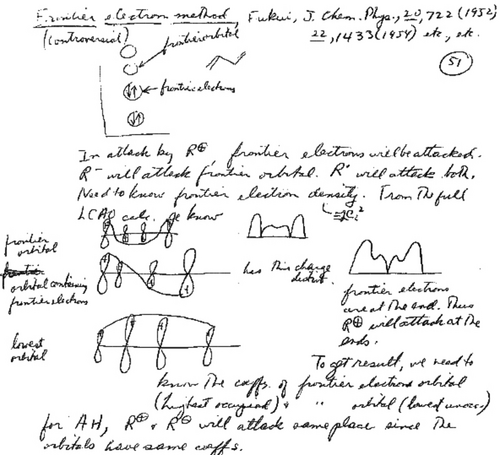 Frontier electron method, Fukui, J. Chem. Phys., 20, 722 (1952)
22, 1433 (1954) etc., etc.
(controversial)
frontier orbital
51
frontier electrons
In attack by R⊕, frontier electrons will be attacked.
R⁻ will attack frontier orbital. R· will attack both.
Need to know frontier electron density. From the full
= c_i²
LCAO calc. we know
frontier
orbital
orbital containing
frontier electrons
has this charge
distrib.
frontier electrons
are at the end. Thus
R⊕ will attack at the
ends.
lowest
orbital
To get result, we need to
know the coeffs. of frontier electron orbital
(highest occupied) & " orbital (lowest unocc.)
for AH, R⊕ & R⊖ will attack same place since the
orbitals have same coeffs.